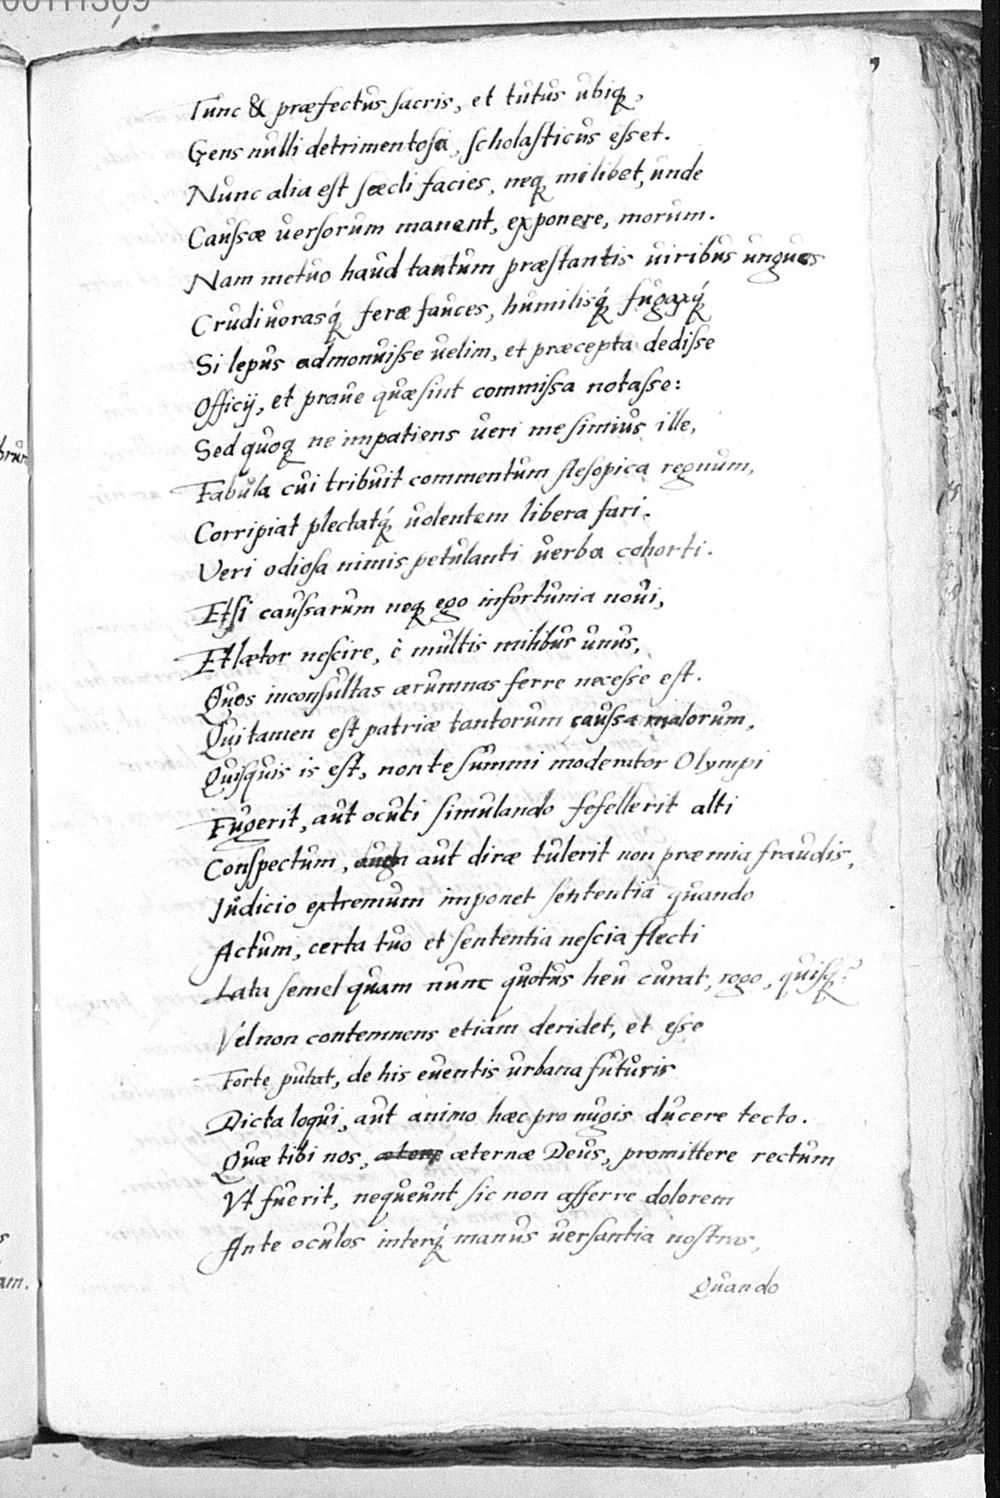 00111309
Tunc & præfectus sacris, et tutus ubiq,
Gens nulli detrimentosa, scholasticus esset.
Nunc alia est sæcli facies, neq milibet, unde
Causæ uersorum manent, exponere, morum.
Nam metuo haud tantum præstantis uiribus ungues
Crudiuorasq́ feræ fauces, humilisq́ fugaxq́
Si lepus admonuisse uelim, et præcepta dedisse
Officij, et praue quæ sint commissa notasse:
Sed quoq ne impatiens ueri me simius ille,
Fabula cui tribuit commentum Aesopica regnum,
Corripiat plectatq́ uolentem libera fari.
Veri odiosa nimis petulanti uerba cohorti.
Etsi causarum neq ego infortunia noui,
Et lætor nescire, è multis milibus unus,
Quos inconsultas ærumnas ferre necesse est.
Qui tamen est patriæ tantorum causa malorum,
Quisquis is est, non te summi moderator Olympi
Fugerit, aut oculi simulando fefellerit alti
Conspectum, aut diræ tulerit non præmia fraudis,
Judicio extremum imponet sententia quando
Actum, certa tuo et sententia nescia flecti
Lata semel quam nunc quotus heu curat, rogo, quisq?
Vel non contemnens etiam deridet, et esse
Forte putat, de his euentis urbana futuris
Dicta loqui, aut animo hæc pro nugis ducere tecto.
Quæ tibi nos, æternæ Deus, promittere rectum
Vt fuerit, nequeunt sic non afferre dolorem
Ante oculos interq́ manus uersantia nostras,
Quando